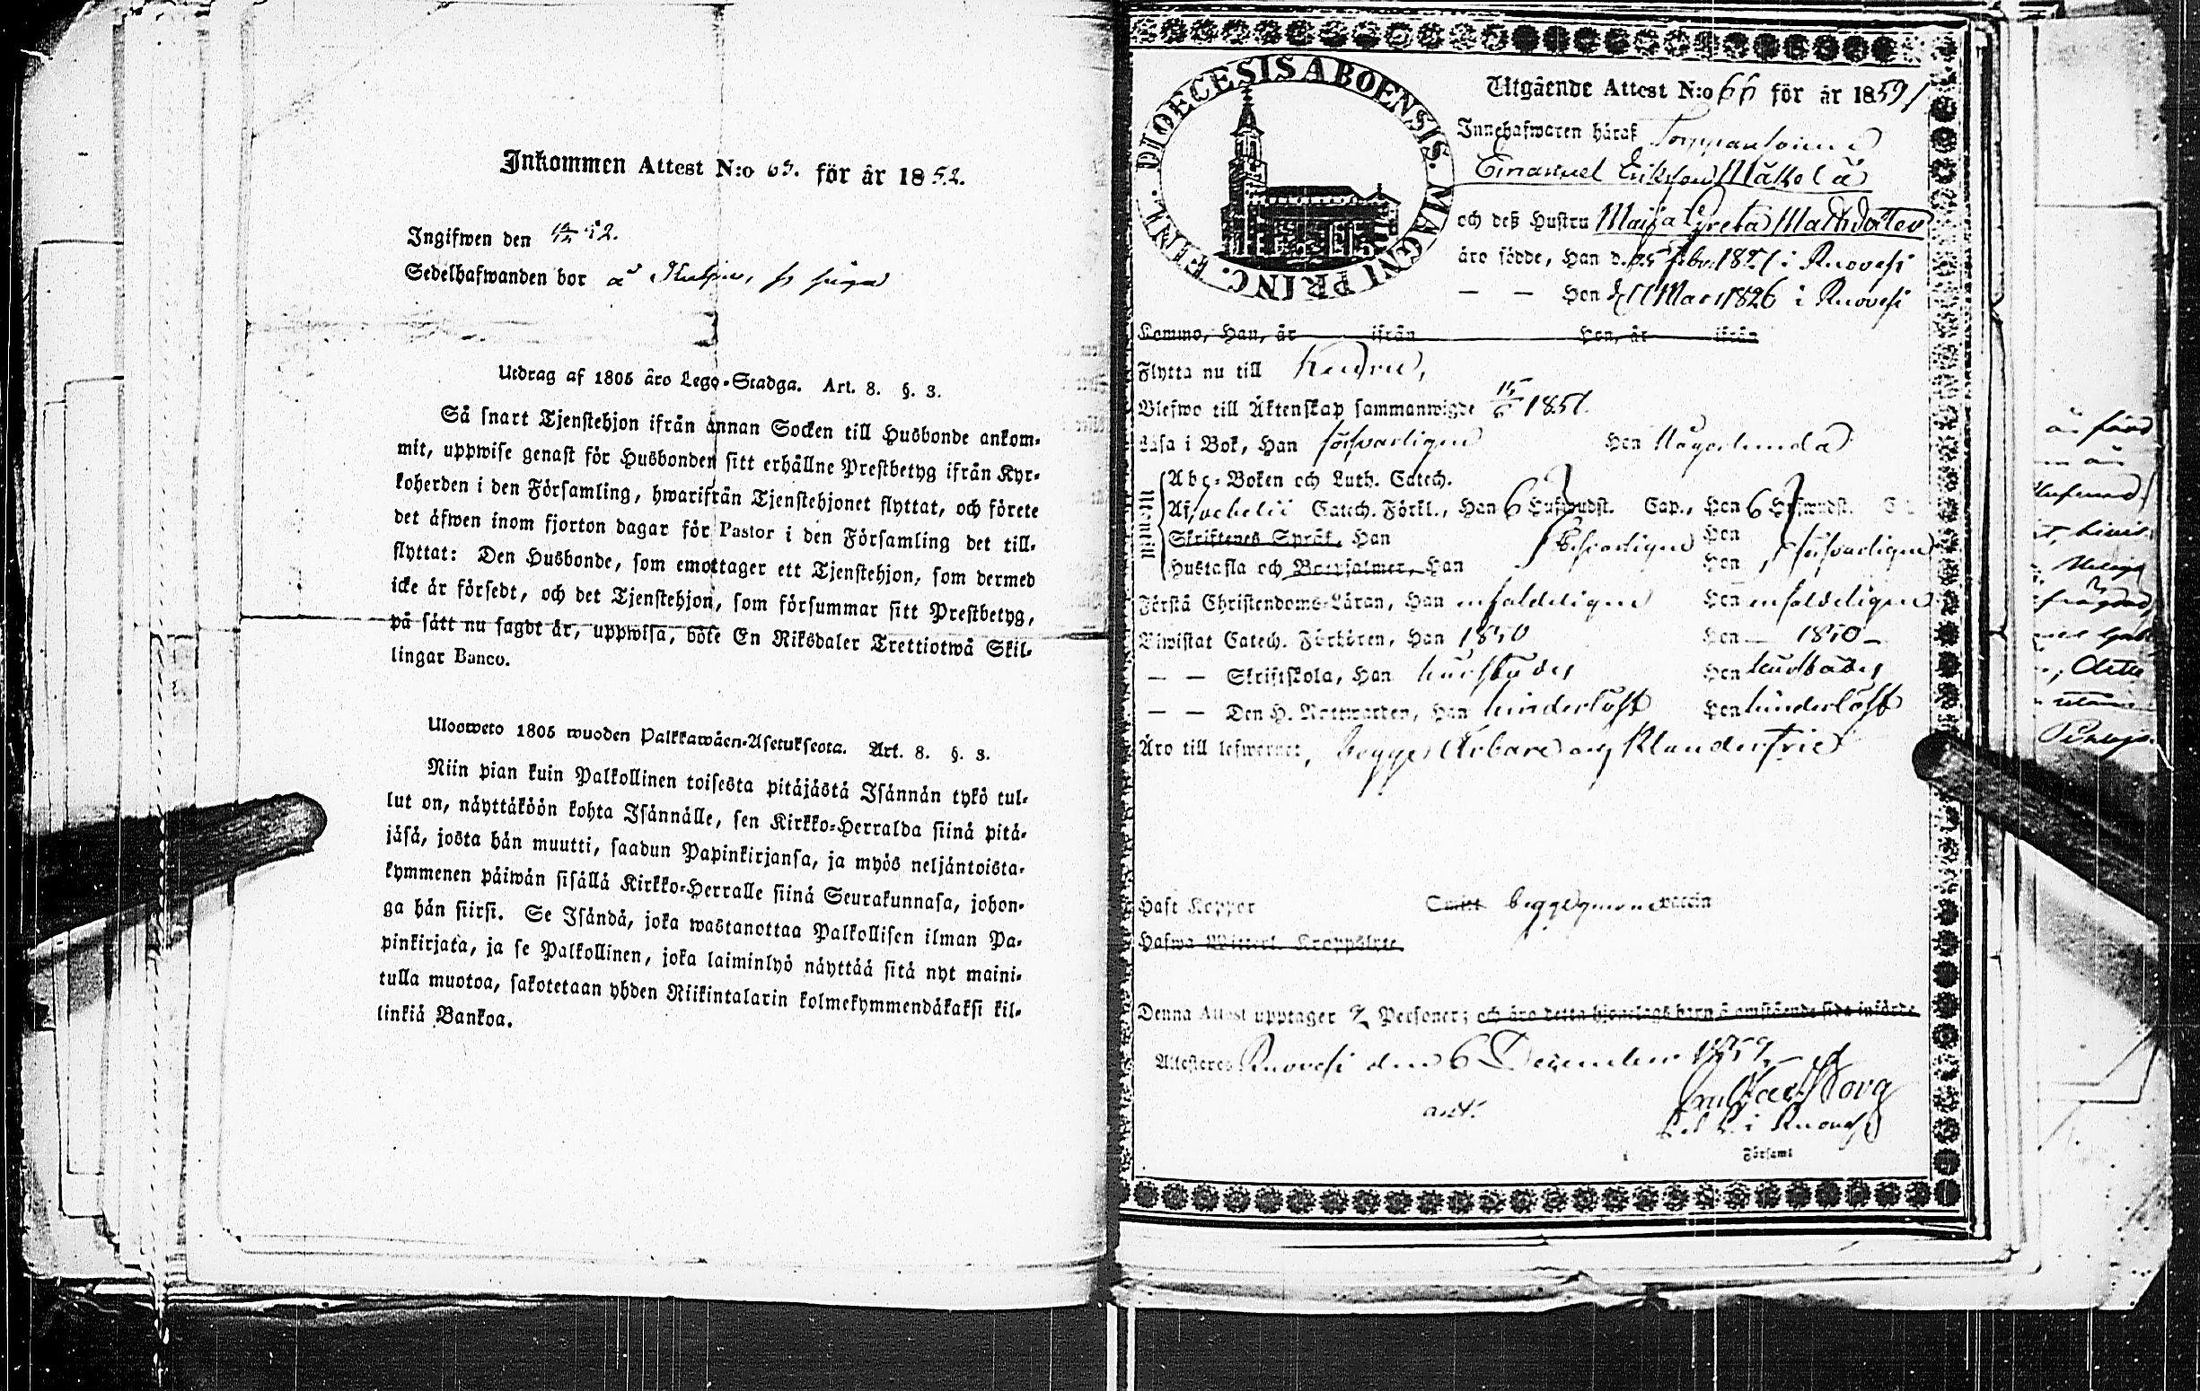 Inkommen Attest N:o 65. för år 1852.
Ingifwen den 52.
Sedelhafwanden bor å
Utdrag af 1805 åro Lego-Stadga. Art. 8. §. 3.
Så snart Tjenstehjon ifrån annan Socken till Husbonde ankom-
mit, uppwise genast för Husbonden sitt erhållne Prestbetyg ifrån Kyr-
koherden i den Församling, hwarifrån Tjenstehjonet flyttat, och förete
det åfwen inom fjorton dagar för Pastor i den Församling det till-
flyttat: Den Husbonde, som emottager ett Tjenstehjon, som dermed
icke är försedt, och det Tjenstehjon, som försummar sitt Prestbetyg,
på sått nu sagdt är, uppwisa, böte En Riksdaler Trettiotwå Skil-
lingar Banco.
Ulosweto 1805 wuoden Palkkawäen-Asetuksesta. Art. 8. §. 3.
Niin pian kuin Palkollinen toisesta pitäjästä Isännän tykö tul-
lut on, näyttäköön kohta Isännälle, sen Kirkko-Herralda siinä pitä-
jäsä, josta hän muutti, saadun Papinkirjansa, ja myös neljäntoista-
kymmenen päiwän sisällä Kirkko-Herralle siinä Seurakunnasa, johon-
ga hän siirsi. Se Isändä, joka wastanottaa Palkollisen ilman Pa-
pinkirjata, ja se Palkollinen, joka laiminlyö näyttää sitä nyt maini-
tulla muotoa, sakotetaan yhden Riikintalarin kolmekymmendäkaksi kil-
linkiä Bankoa.
DIOECESIS ABOENSIS. MAGNI PRINC. FINL.
Utgående Attest N:o 66 för år 1851
Innehafwaren häraf
Emanuel Eriksson Mäkelä
och deß Hustru Maija Greta Mathsdotter
äro födde, Han d. 25 Febr. 18 i Ruovesi
— — Hon d. 11 Mars 1826 i Ruovesi
Kommo, Han, år ifrån Hon, år ifrån
Flytta nu till Keuru,
Blefwo till Äktenskap sammanwigde 1851.
Läsa i Bok, Han försvarligen Hon någorlunda
Utur minnet
Abc-Boken och Luth. Catech.
Catech. Förkl., Han 6 Hufwudst. Cap., Hon 6 Hufwudst.
Skriftenes Språk, Han Hon
Hustafla och Botpsalmer, Han försvarligen Hon försvarligen
Förstå Christendoms-Läran, Han enfaldeligen Hon enfaldeligen
Biwistat Catech. Förhören, Han 1850 Hon — 1850 —
— — Skriftskola, Han Hon
— — Den H. Nattwarden, Han hinderlöst Hon hinderlöst
Äro till lefwernet, begge Ärbare och Klanderfrie
Haft Koppor begge vaccin
Hafwa Witterl. Kroppslyte
Denna Attest upptager 2 Personer; och äro detta hjonelags barn å omstående sida införde.
Attesteras Ruovesi den 6 December 185
Gustaf
i Ruovesi
Församl